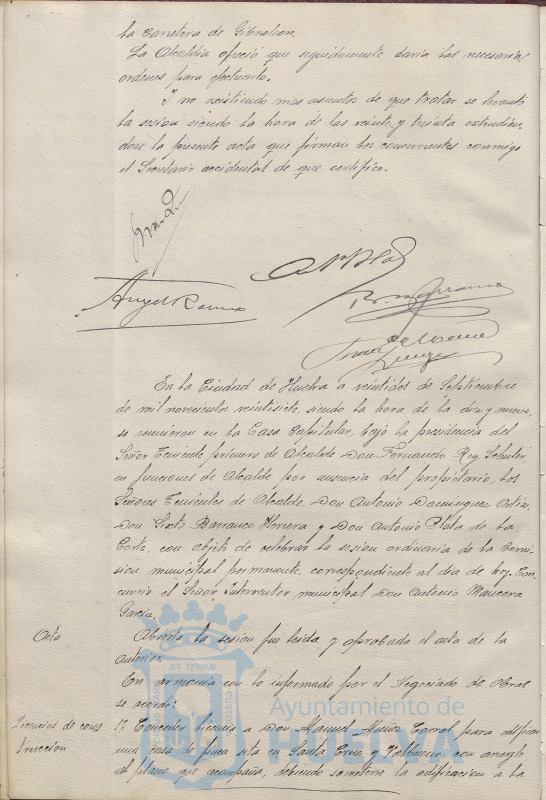 la Carretera de Gibraleon.
La Alcaldia ofreció que seguidamente daria las necesarias
ordenes para efectuarlo.
Y no existiendo mas asuntos de que tratar se levantó
la sesion siendo la hora de las veinte y treinta extendien-
dose la presente acta que firman los concurrentes conmigo
el Secretario accidental de que certifico.
Angel
En la Ciudad de Huelva a veintidos de Septiembre
de mil novecientos veintisiete, siendo la hora de las diez y nueve,
se reunieron en la Casa Capitular, bajo la presidencia del
Señor Teniente primero de Alcalde Don Fernando Rey
en funciones de Alcalde por ausencia del propietario, los
Señores Tenientes de Alcalde, Don Antonio Dominguez Ortiz,
Don Sixto Barranco Herrera y Don Antonio Plata de la
Corte, con objeto de celebrar la sesion ordinaria de la Comi-
sion municipal permanente, correspondiente al dia de hoy. Con-
currió el Señor Interventor municipal Don Antonio Mancera
Garcia.
Acta Abierta la sesion fue leida y aprobada el acta de la
anterior.
En armonia con lo informado por el Negociado de Obras
se acordó:
Licencias de cons 1º Conceder licencia a Don Manuel Muñoz Corral para edificar
truccion una casa de sita en Santa Cruz y con arreglo
al plano que acompaña, debiendo someterse la edificacion a la
ET TERRÆ
Ayuntamiento de
HUELVA